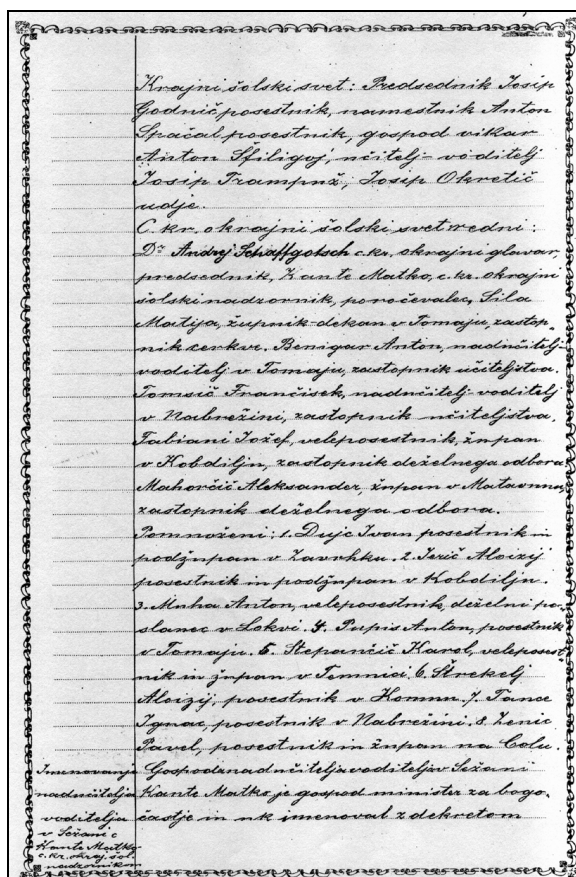 Krajni šolski svet: Predsednik Josip
Godnič posestnik, namestnik Anton
Spačal posestnik, gospod vikar
Anton Šfiligoj, učitelj-voditelj
Josip Trampuž, Josip Okretič
udje.
C. kr. okrajni šolski svet redni:
Dr Andrej Schaffgotsch c. kr. okrajni glavar,
predsednik, Kante Matko, c. kr. okrajni
šolski nadzornik, poročevalec, Sila
Matija, župnik-dekan v Tomaju, zastop-
nik cerkve. Benigar Anton, nadučitelj-
voditelj v Tomaju, zastopnik učiteljstva.
Tomšič Frančišek, nadučitelj-voditelj
v Nabrežini, zastopnik učiteljstva.
Fabiani Jožef, veleposestnik, župan
v Kobdilju, zastopnik deželnega odbora
Mahorčič Aleksander, župan v Matavunu,
zastopnik deželnega odbora.
Pomnoženi: 1. Dujc Ivan posestnik in
podžupan v Zavrhku. 2. Jerič Aloizij
posestnik in podžupan v Kobdilju.
3. Muha Anton, veleposestnik, deželni po-
slanec v Lokvi. 4. Pupis Anton, posestnik
v Tomaju. 5. Štepančič Karol, veleposest-
nik in župan v Temnici 6. Štrekelj
Aloizij, posestnik v Komnu. 7. Tance
Ignac, posestnik v Nabrežini. 8. Zenic
Pavel, posestnik in župan na Colu.
Gospoda nadučitelja voditelja v Sežani
Kante Matko je gospod minister za bogo-
častje in uk imenoval z dekretom
Imenovanje
nadučitelja
voditelja
v Sežani c
Kante Matko
c. kr. okraj. šol.
nadzornikom